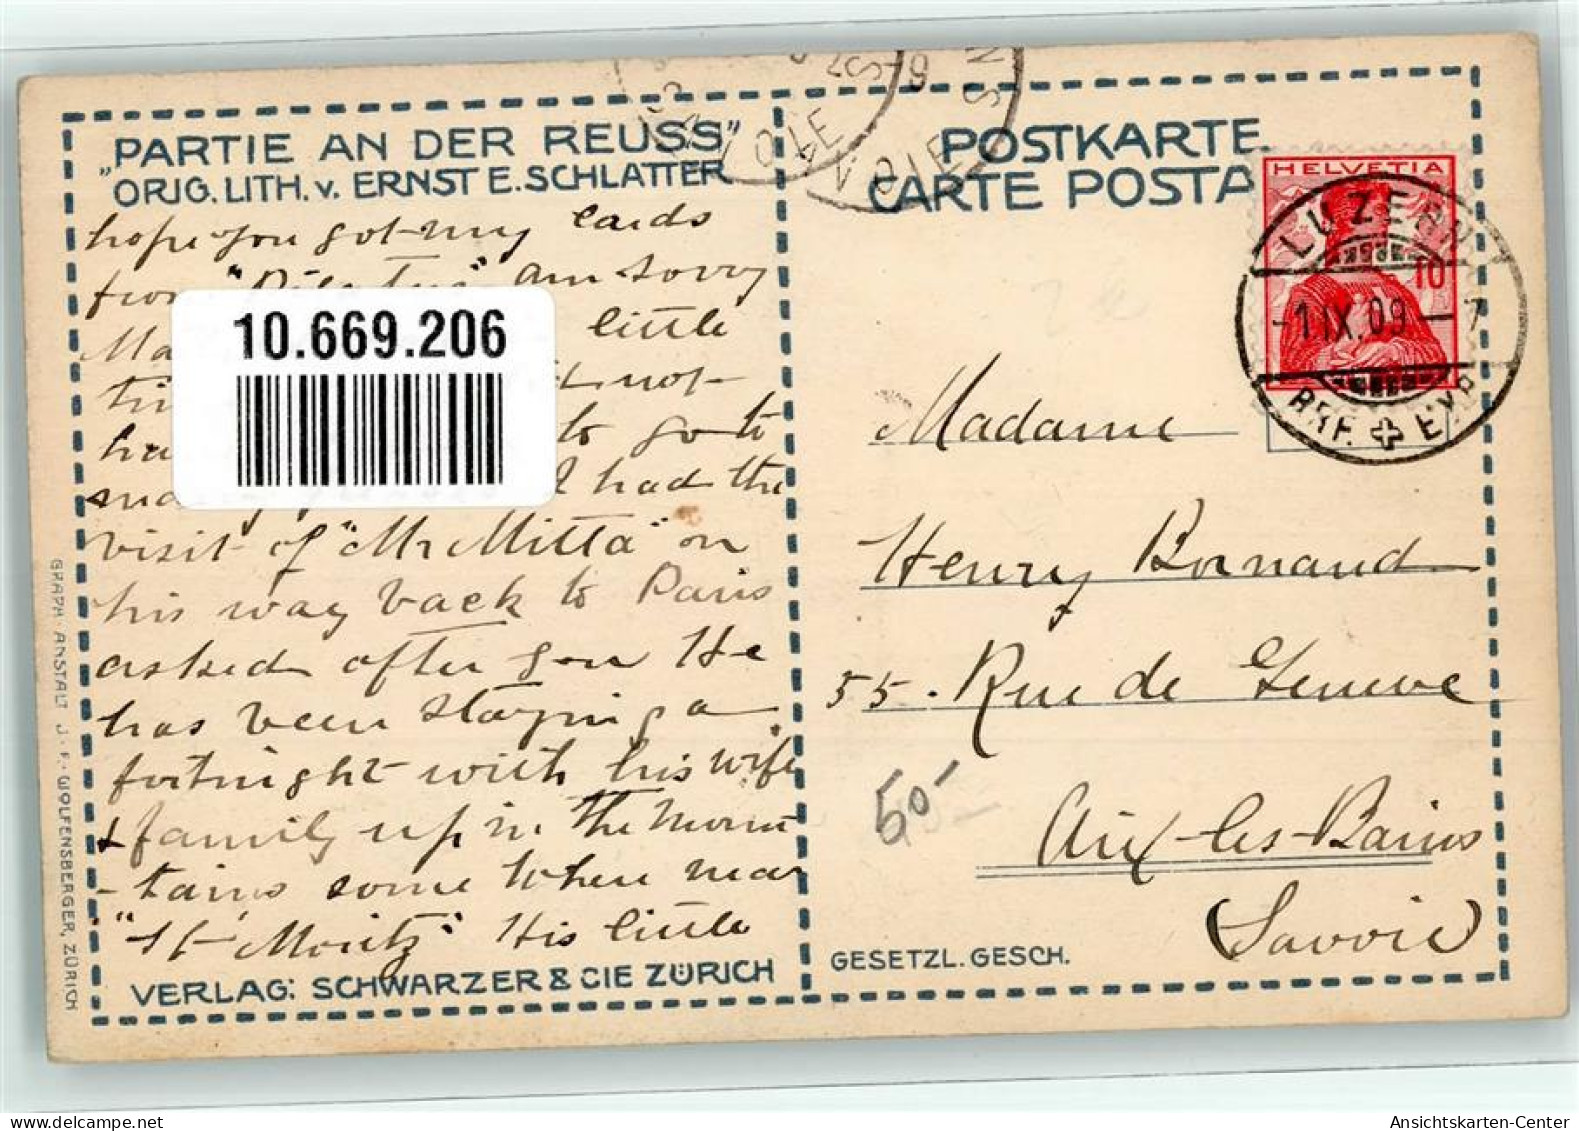 „PARTIE AN DER REUSS"
ORIG. LITH. v. ERNST E. SCHLATTER
hope you got my cards
from "Pilatus" am sorry
little
not
to go to
I had the
visit of "Mr Mitta" on
his way back to Paris
asked after you He
has been staying a
fortnight with his wife
& family up in the moun
-tains some when near
"St Moritz" His little
VERLAG: SCHWARZER & CIE ZÜRICH
GRAPH. ANSTALT J. F. WOLFENSBERGER, ZÜRICH
10.669.206
POSTKARTE
CARTE POSTA
HELVETIA
10
LUZERN
-1.IX.09.-7
BRF. EXP.
Madame
Henry Bornand
55. Rue de Geneve
Aix-les-Bains
(Savoie)
50-
GESETZL. GESCH.
Ansichtskarten-Center